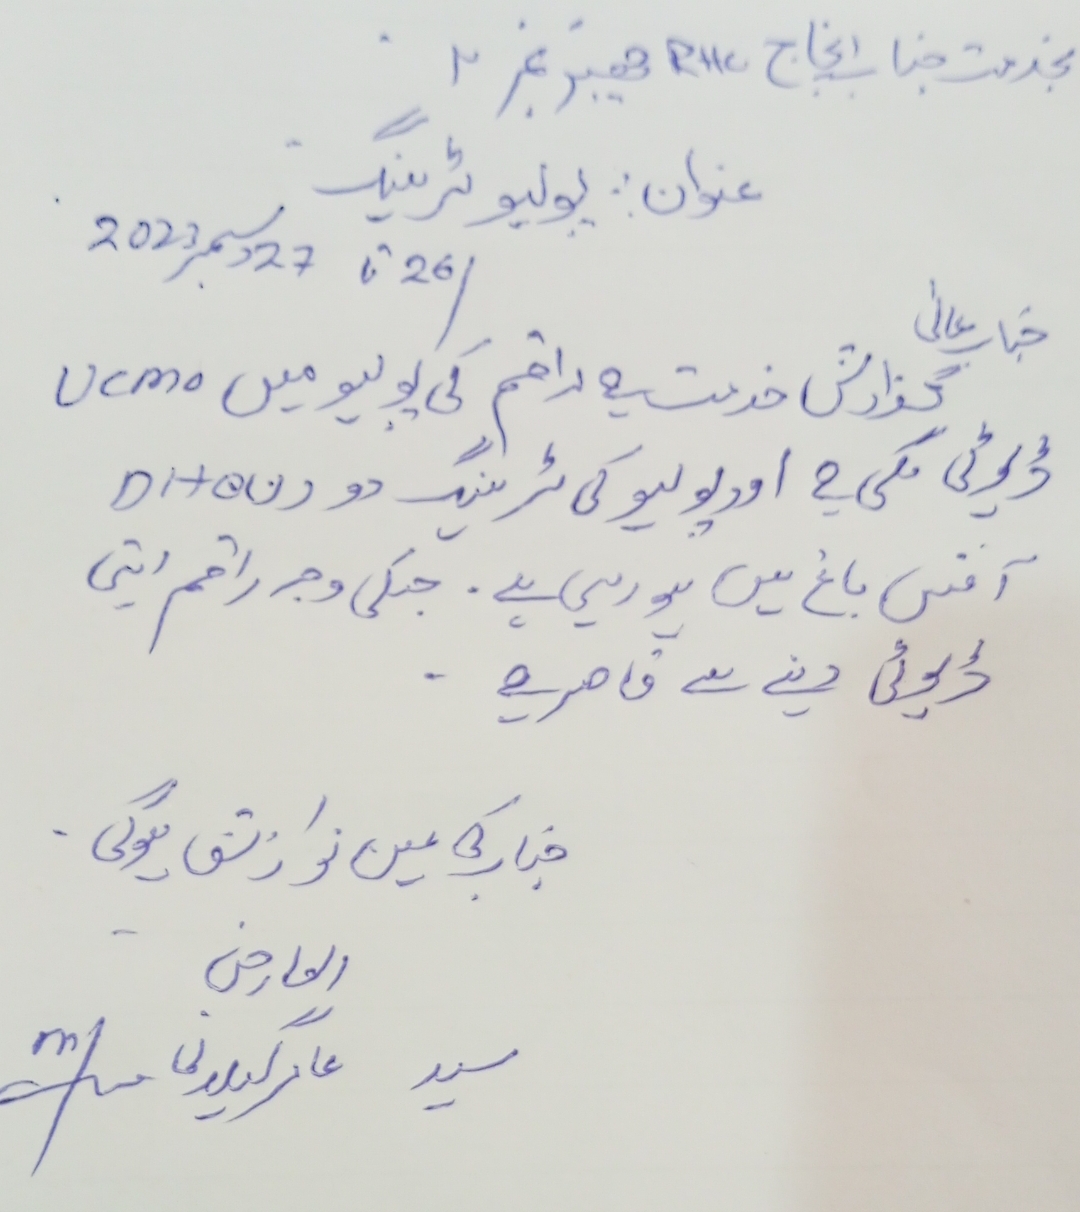 بخدمت جناب انچارج RHC چھپڑ نمبر ۲
عنوان: پولیو ٹریننگ
26 تا 27 دسمبر 2023
جناب عالی
گزارش خدمت ہے راقم کی پولیو میں UCMO
ڈیوٹی لگی ہے اور پولیو کی ٹریننگ دو دن DHO
آفس باغ میں ہو رہی ہے۔ جسکی وجہ راقم اپنی
ڈیوٹی دینے سے قاصر ہے۔
جناب کی عین نوازش ہوگی۔
العارض
سید گیلانی